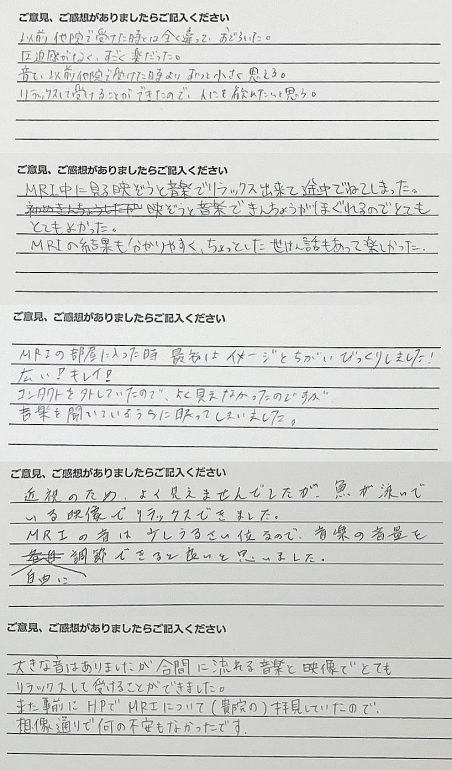 ご意見、ご感想がありましたらご記入ください
以前他院で受けた時とは全く違って、おどろいた。
圧迫感がなく、すごく楽だった。
音も以前他院で受けた時よりずっと小さく思える。
リラックスして受けることができたので、人にも飲めたいと思う。
ご意見、ご感想がありましたらご記入ください
MRI中に見る映ぞうと音楽でリラックス出来て途中でねてしまった。
初めきんちょうしたが 映ぞうと音楽できんちょうがほぐれるのでとても
とてもよかった。
MRIの結果も分かりやすく、ちょっとしたせけん話もあって楽しかった.
ご意見、ご感想がありましたらご記入ください
MRIの部屋に入った時 最初はイメージとちがいびっくりしました!
広い!キレイ!
コンタクトを外していたので、よく見えなかったのですが
音楽を聞いているうちに眠ってしまいました。
ご意見、ご感想がありましたらご記入ください
近視のため、よく見えませんでしたが、魚が泳いで
いる映像でリラックスできました。
MRIの音は少しうるさい位なので、音楽の音量を
調節できると良いと思いました。
自由に
ご意見、ご感想がありましたらご記入ください
大きな音はありましたが合間に流れる音楽と映像でとても
リラックスして受けることができました。
また事前にHPでMRIについて(貴院の)拝見していたので、
想像通りで何の不安もなかったです.